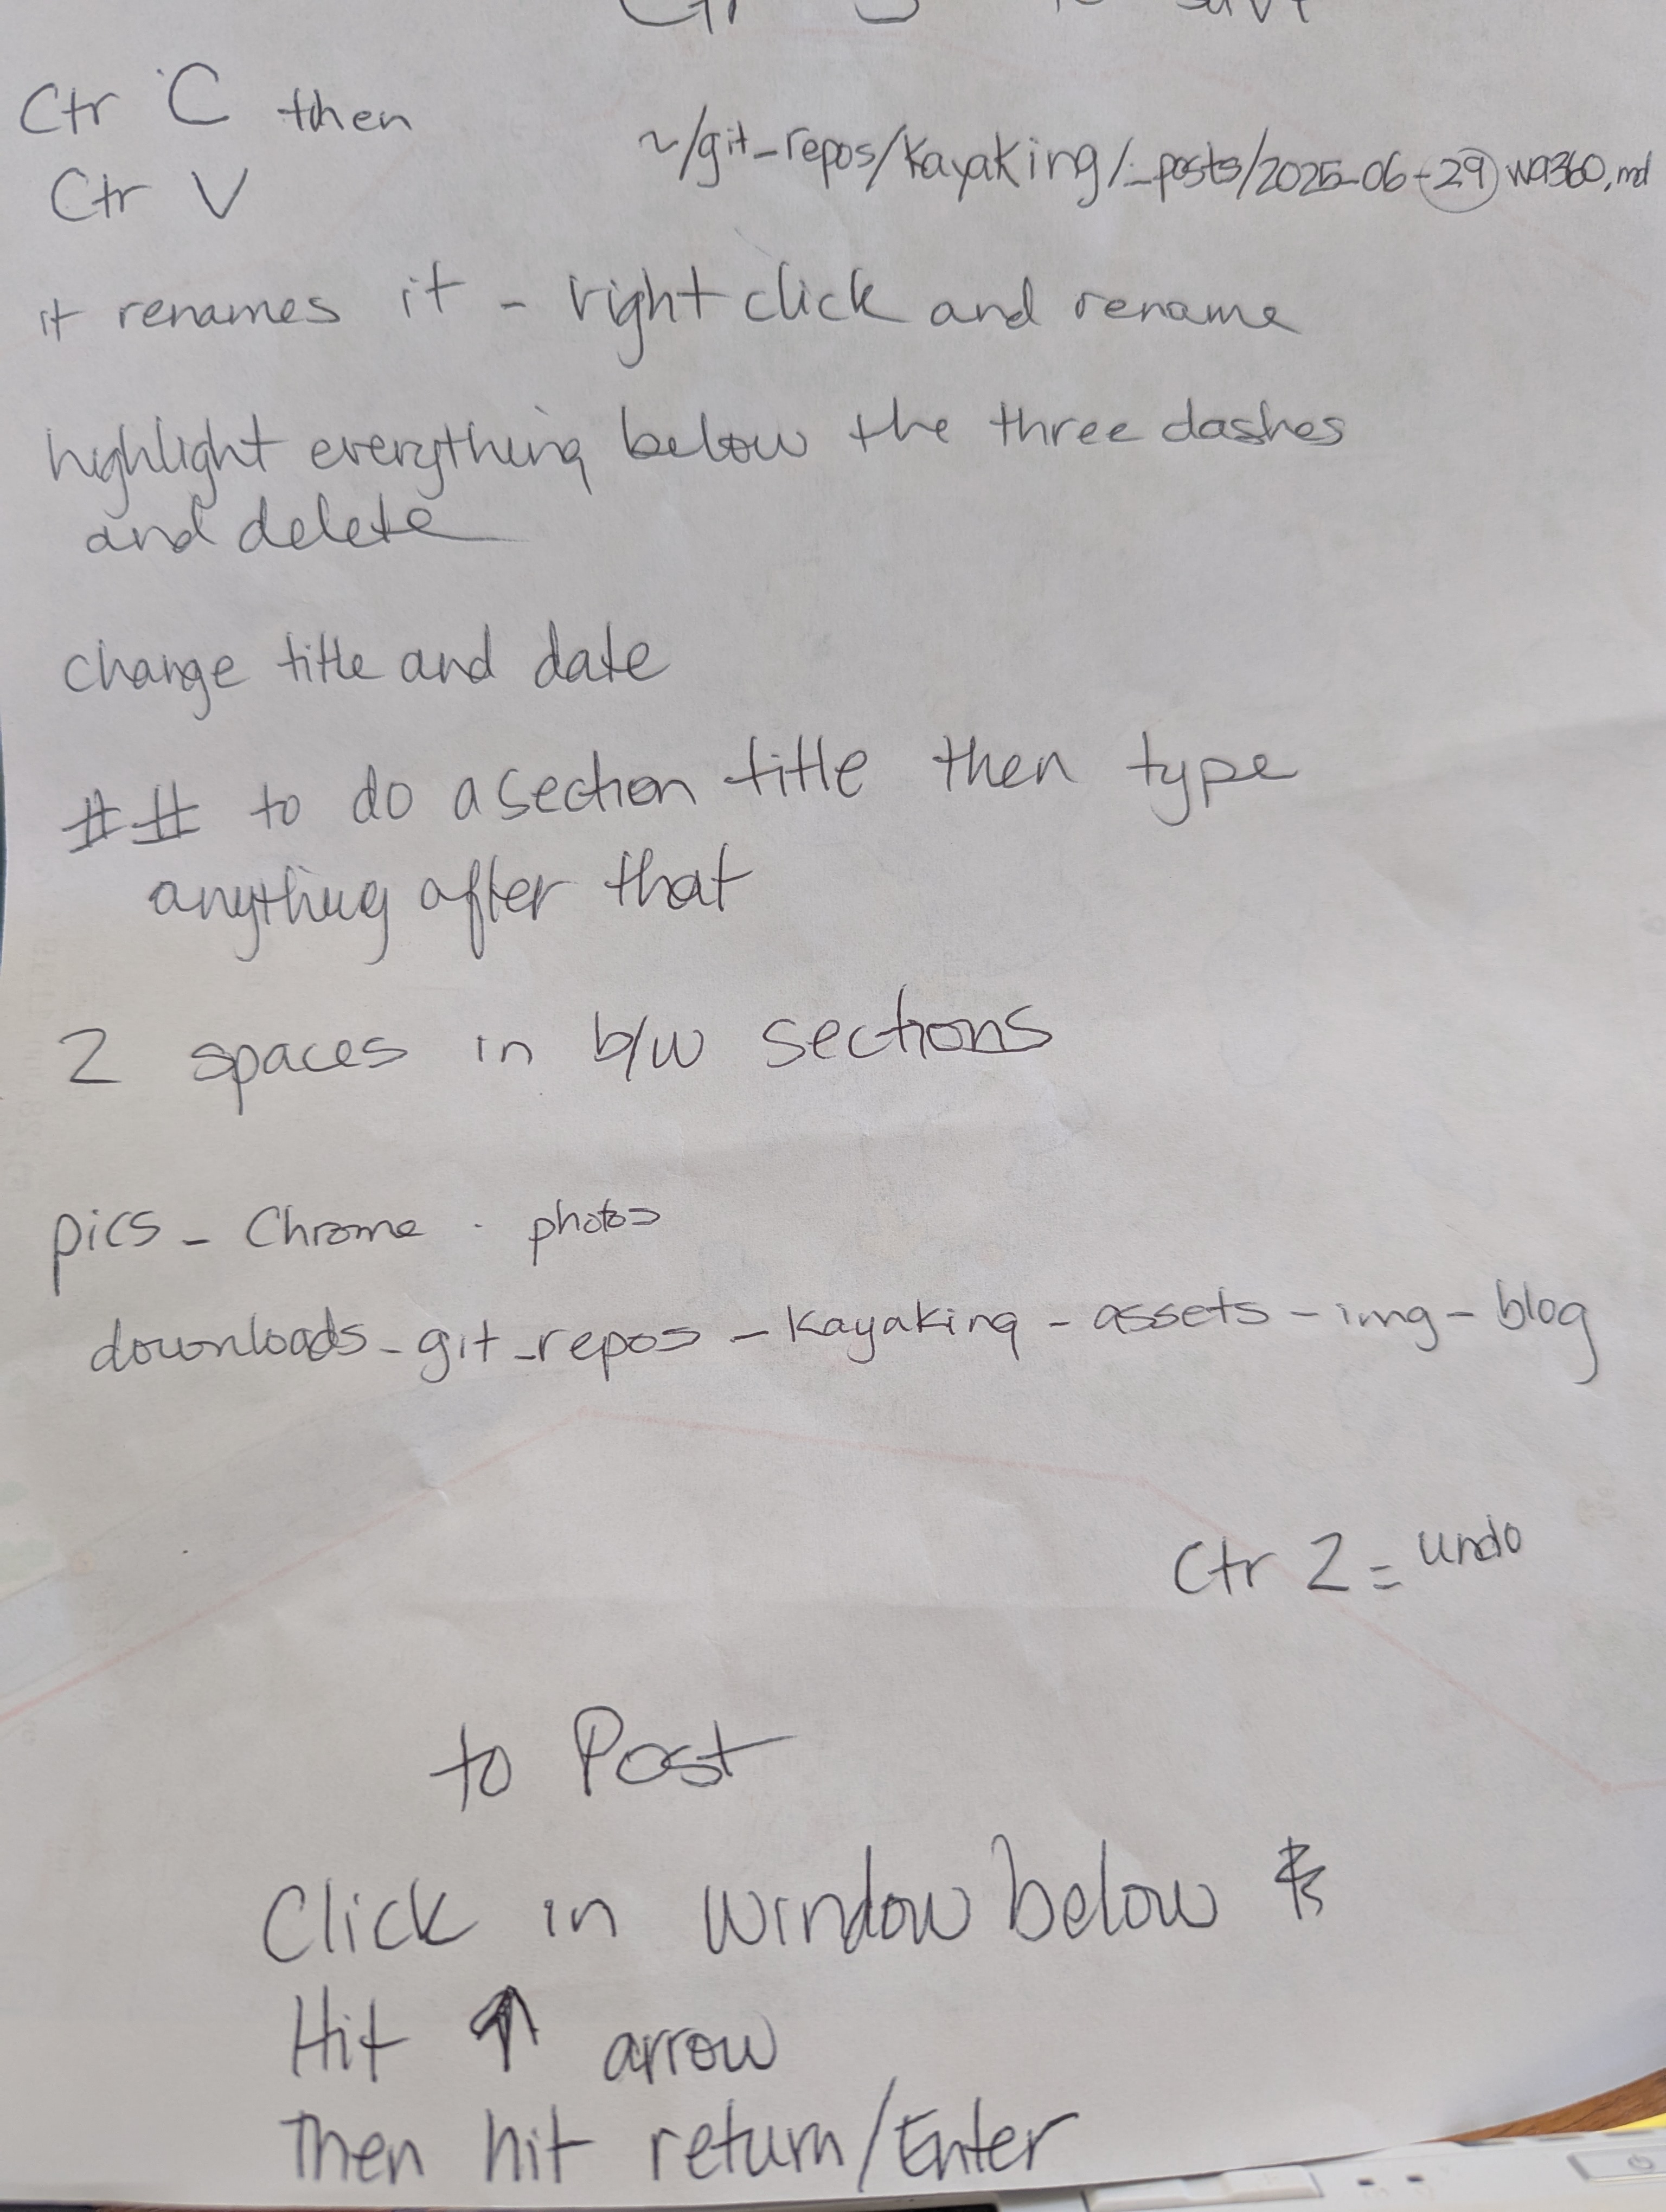 Ctr S to save
Ctr C then
Ctr V
~/git_repos/kayaking/_posts/2025-06-29 wa360.md
it renames it - right click and rename
highlight everything below the three dashes
and delete
change title and date
## to do a section title then type
anything after that
2 spaces in b/w sections
pics - Chrome . photos
downloads - git_repos - kayaking - assets - img - blog
Ctr Z = undo
to Post
Click in window below &
Hit ↑ arrow
Then hit return/Enter